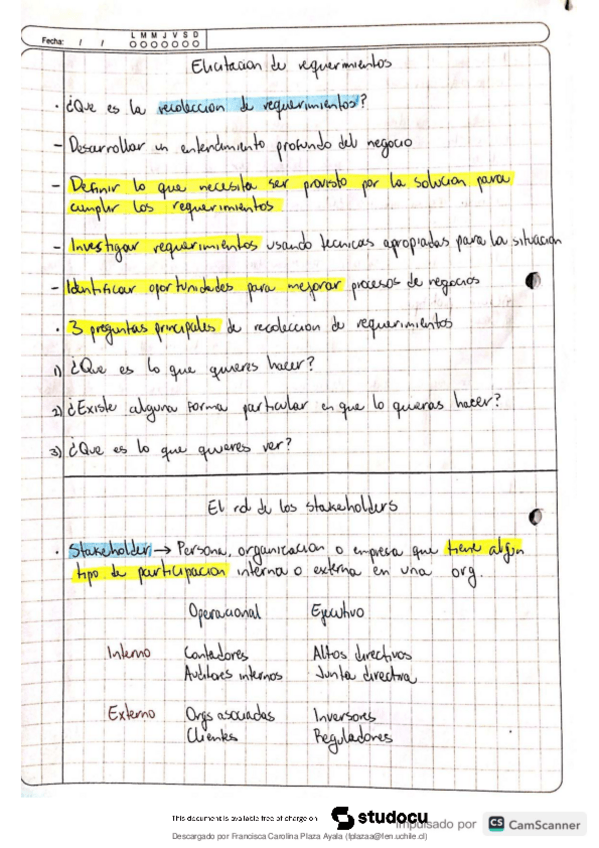 L M M J V S D
Fecha: / /
Elicitacion de requerimientos
· ¿Que es la recoleccion de requerimientos?
- Desarrollar un entendimiento profundo del negocio
- Definir lo que necesita ser provisto por la solucion para
cumplir los requerimientos
- Investigar requerimientos usando tecnicas apropiadas para la situacion
- Identificar oportunidades para mejorar procesos de negocios
· 3 preguntas principales de recoleccion de requerimientos
1) ¿Que es lo que quieres hacer?
2) ¿Existe alguna forma particular en que lo quieras hacer?
3) ¿Que es lo que quieres ver?
El rol de los stakeholders
· Stakeholder → Persona, organizacion o empresa que tiene algun
tipo de participacion interna o externa en una org.
Operacional Ejecutivo
Interno Contadores Altos directivos
Auditores internos Junta directiva
Externo Orgs asociadas Inversores
Clientes Reguladores
This document is available free of charge on studocu
Impulsado por CS CamScanner
Descargado por Francisca Carolina Plaza Ayala (fplazaa@fen.uchile.cl)